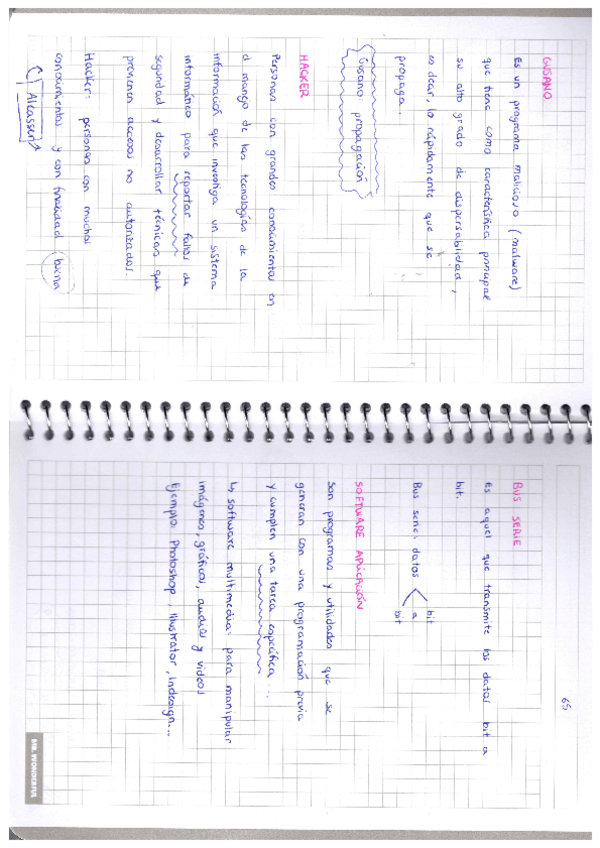 GUSANO
Es un programa malicioso (malware)
que tiene como característica principal
su alto grado de dispersabilidad,
es decir, lo rápidamente que se
propaga.
Gusano: propagación
HACKER
Personas con grandes conocimientos en
el manejo de las tecnologías de la
información que investiga un sistema
informático para reportar fallos de
seguridad y desarrollar técnicas que
previenen accesos no autorizados.
Hacker: personas con muchos
conocimientos y con finalidad buena
Alcasser
65
BUS SERIE
Es aquel que transmite los datos bit a
bit.
Bus serie: datos bit
a
bit
SOFTWARE APLICACIÓN
Son programas y utilidades que se
generan con una programación previa
y cumplen una tarea específica...
↳ software multimedia: para manipular
imágenes, gráficos, audios y videos
Ejemplo: Photoshop, Illustrator, Indesign...
MR. WONDERFUL